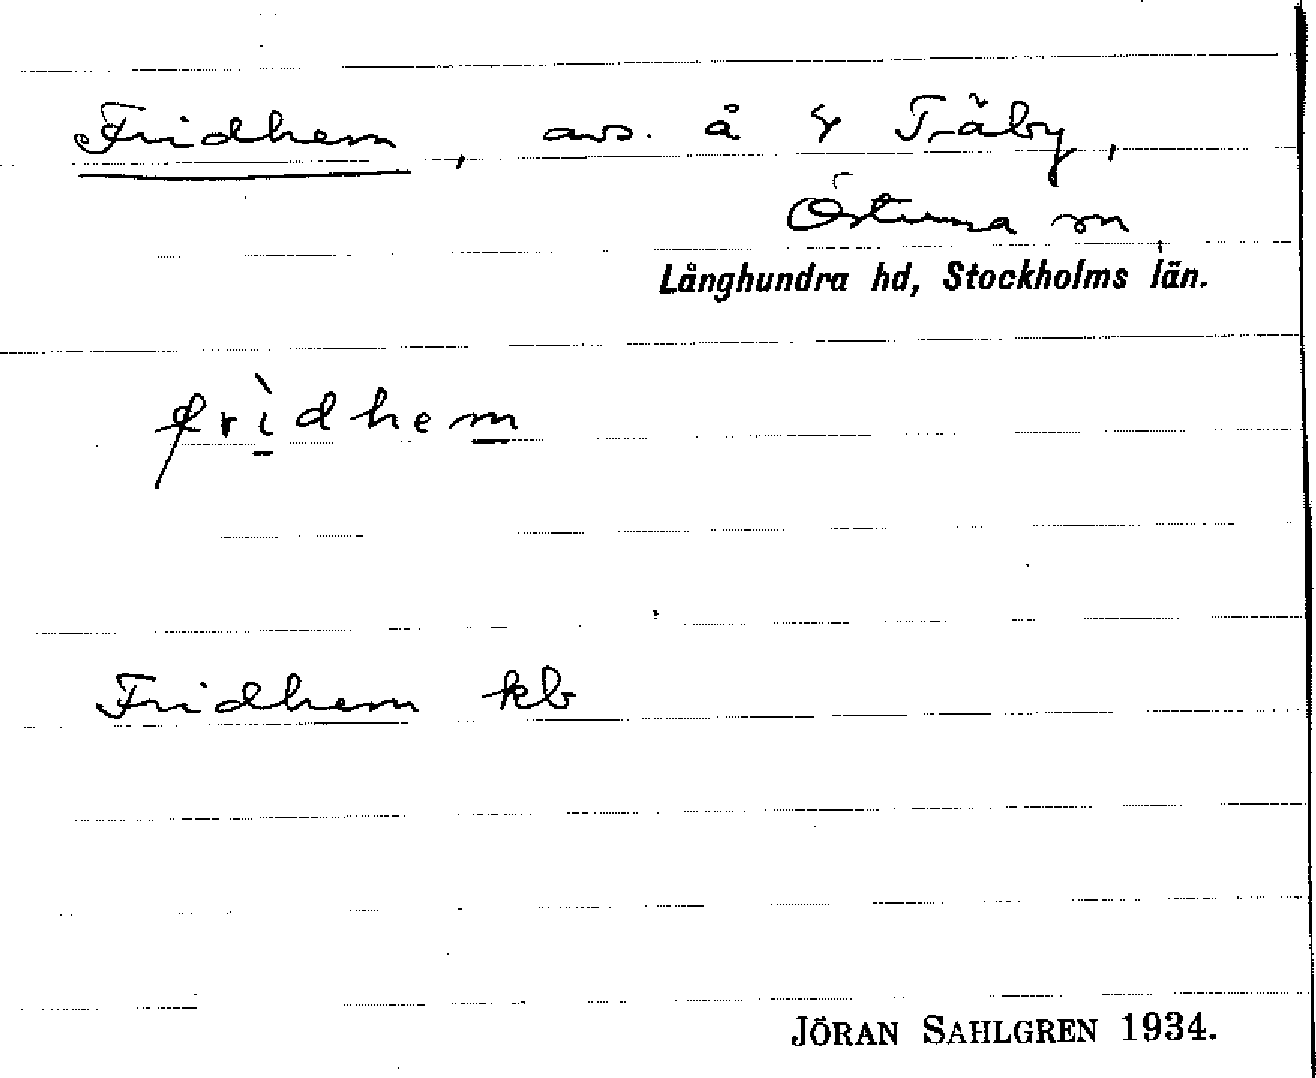 Fridhem, avs. å 8 Träby,
Östuna sn,
Långhundra hd, Stockholms län.
frìdhem
Fridhem kb
JÖRAN SAHLGREN 1934.